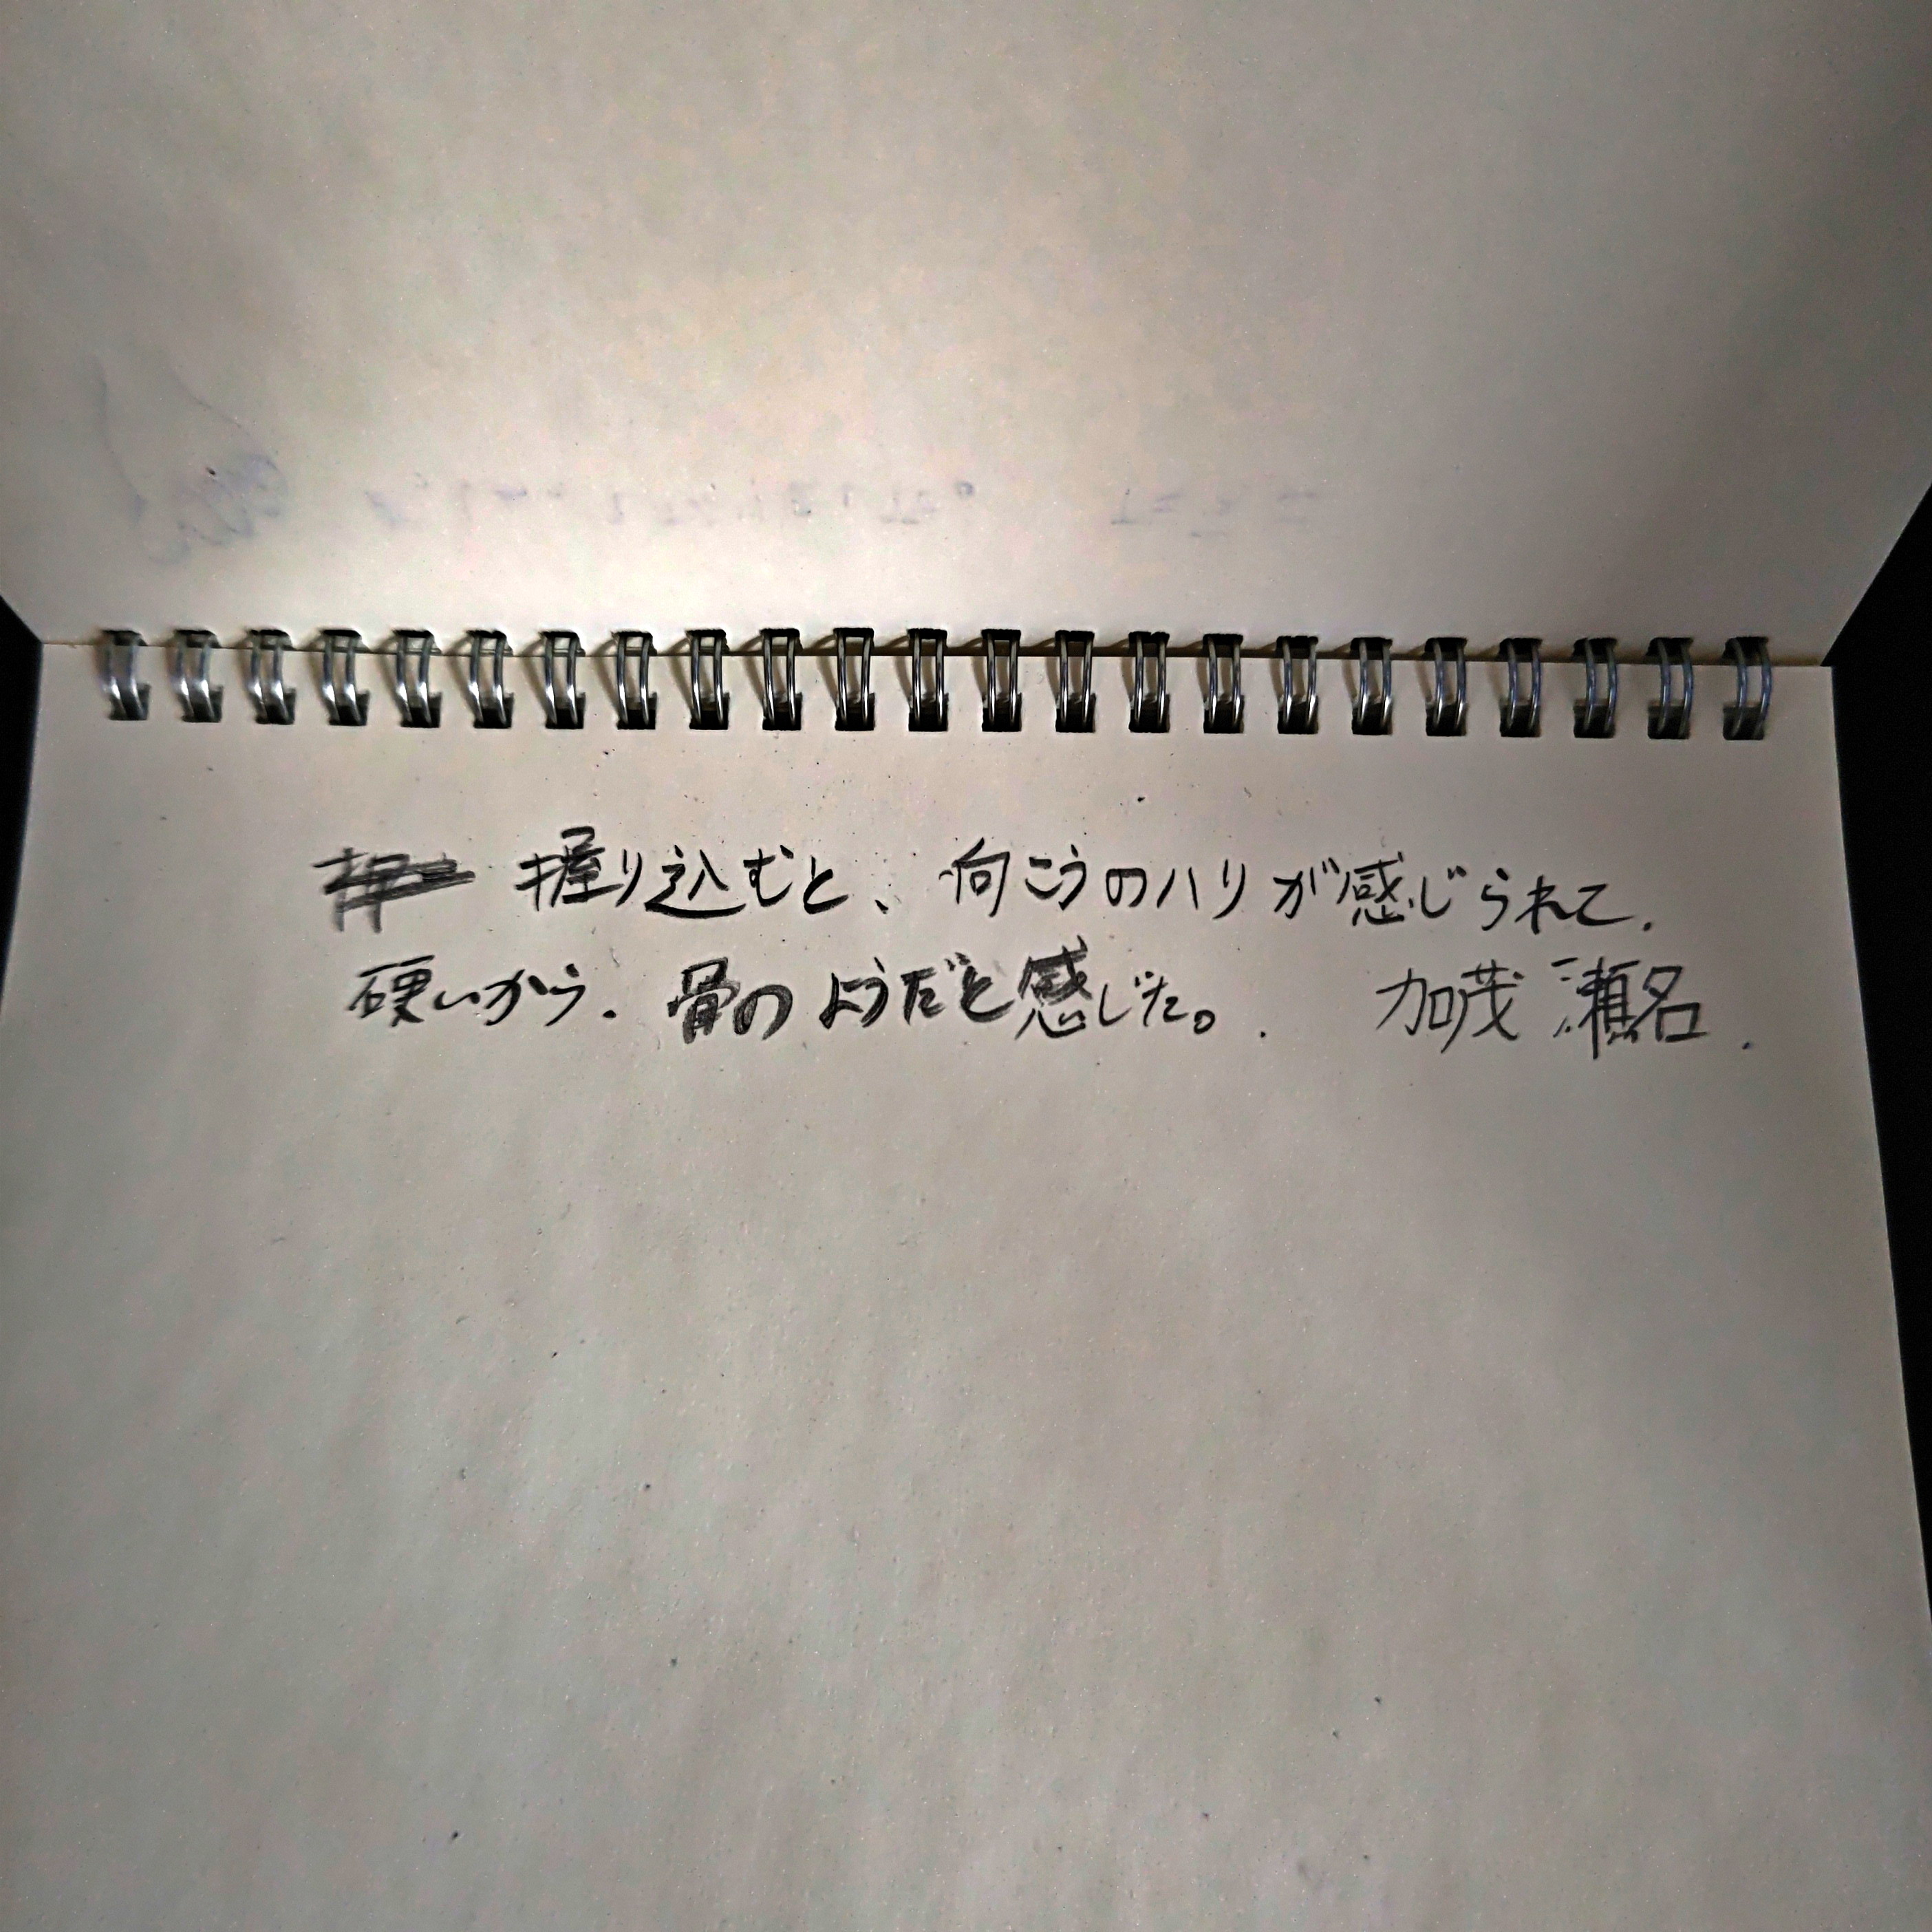 握り込むと、向こうのハリが感じられて.
硬いから. 骨のようだと感じた。. 加茂 瀬名.